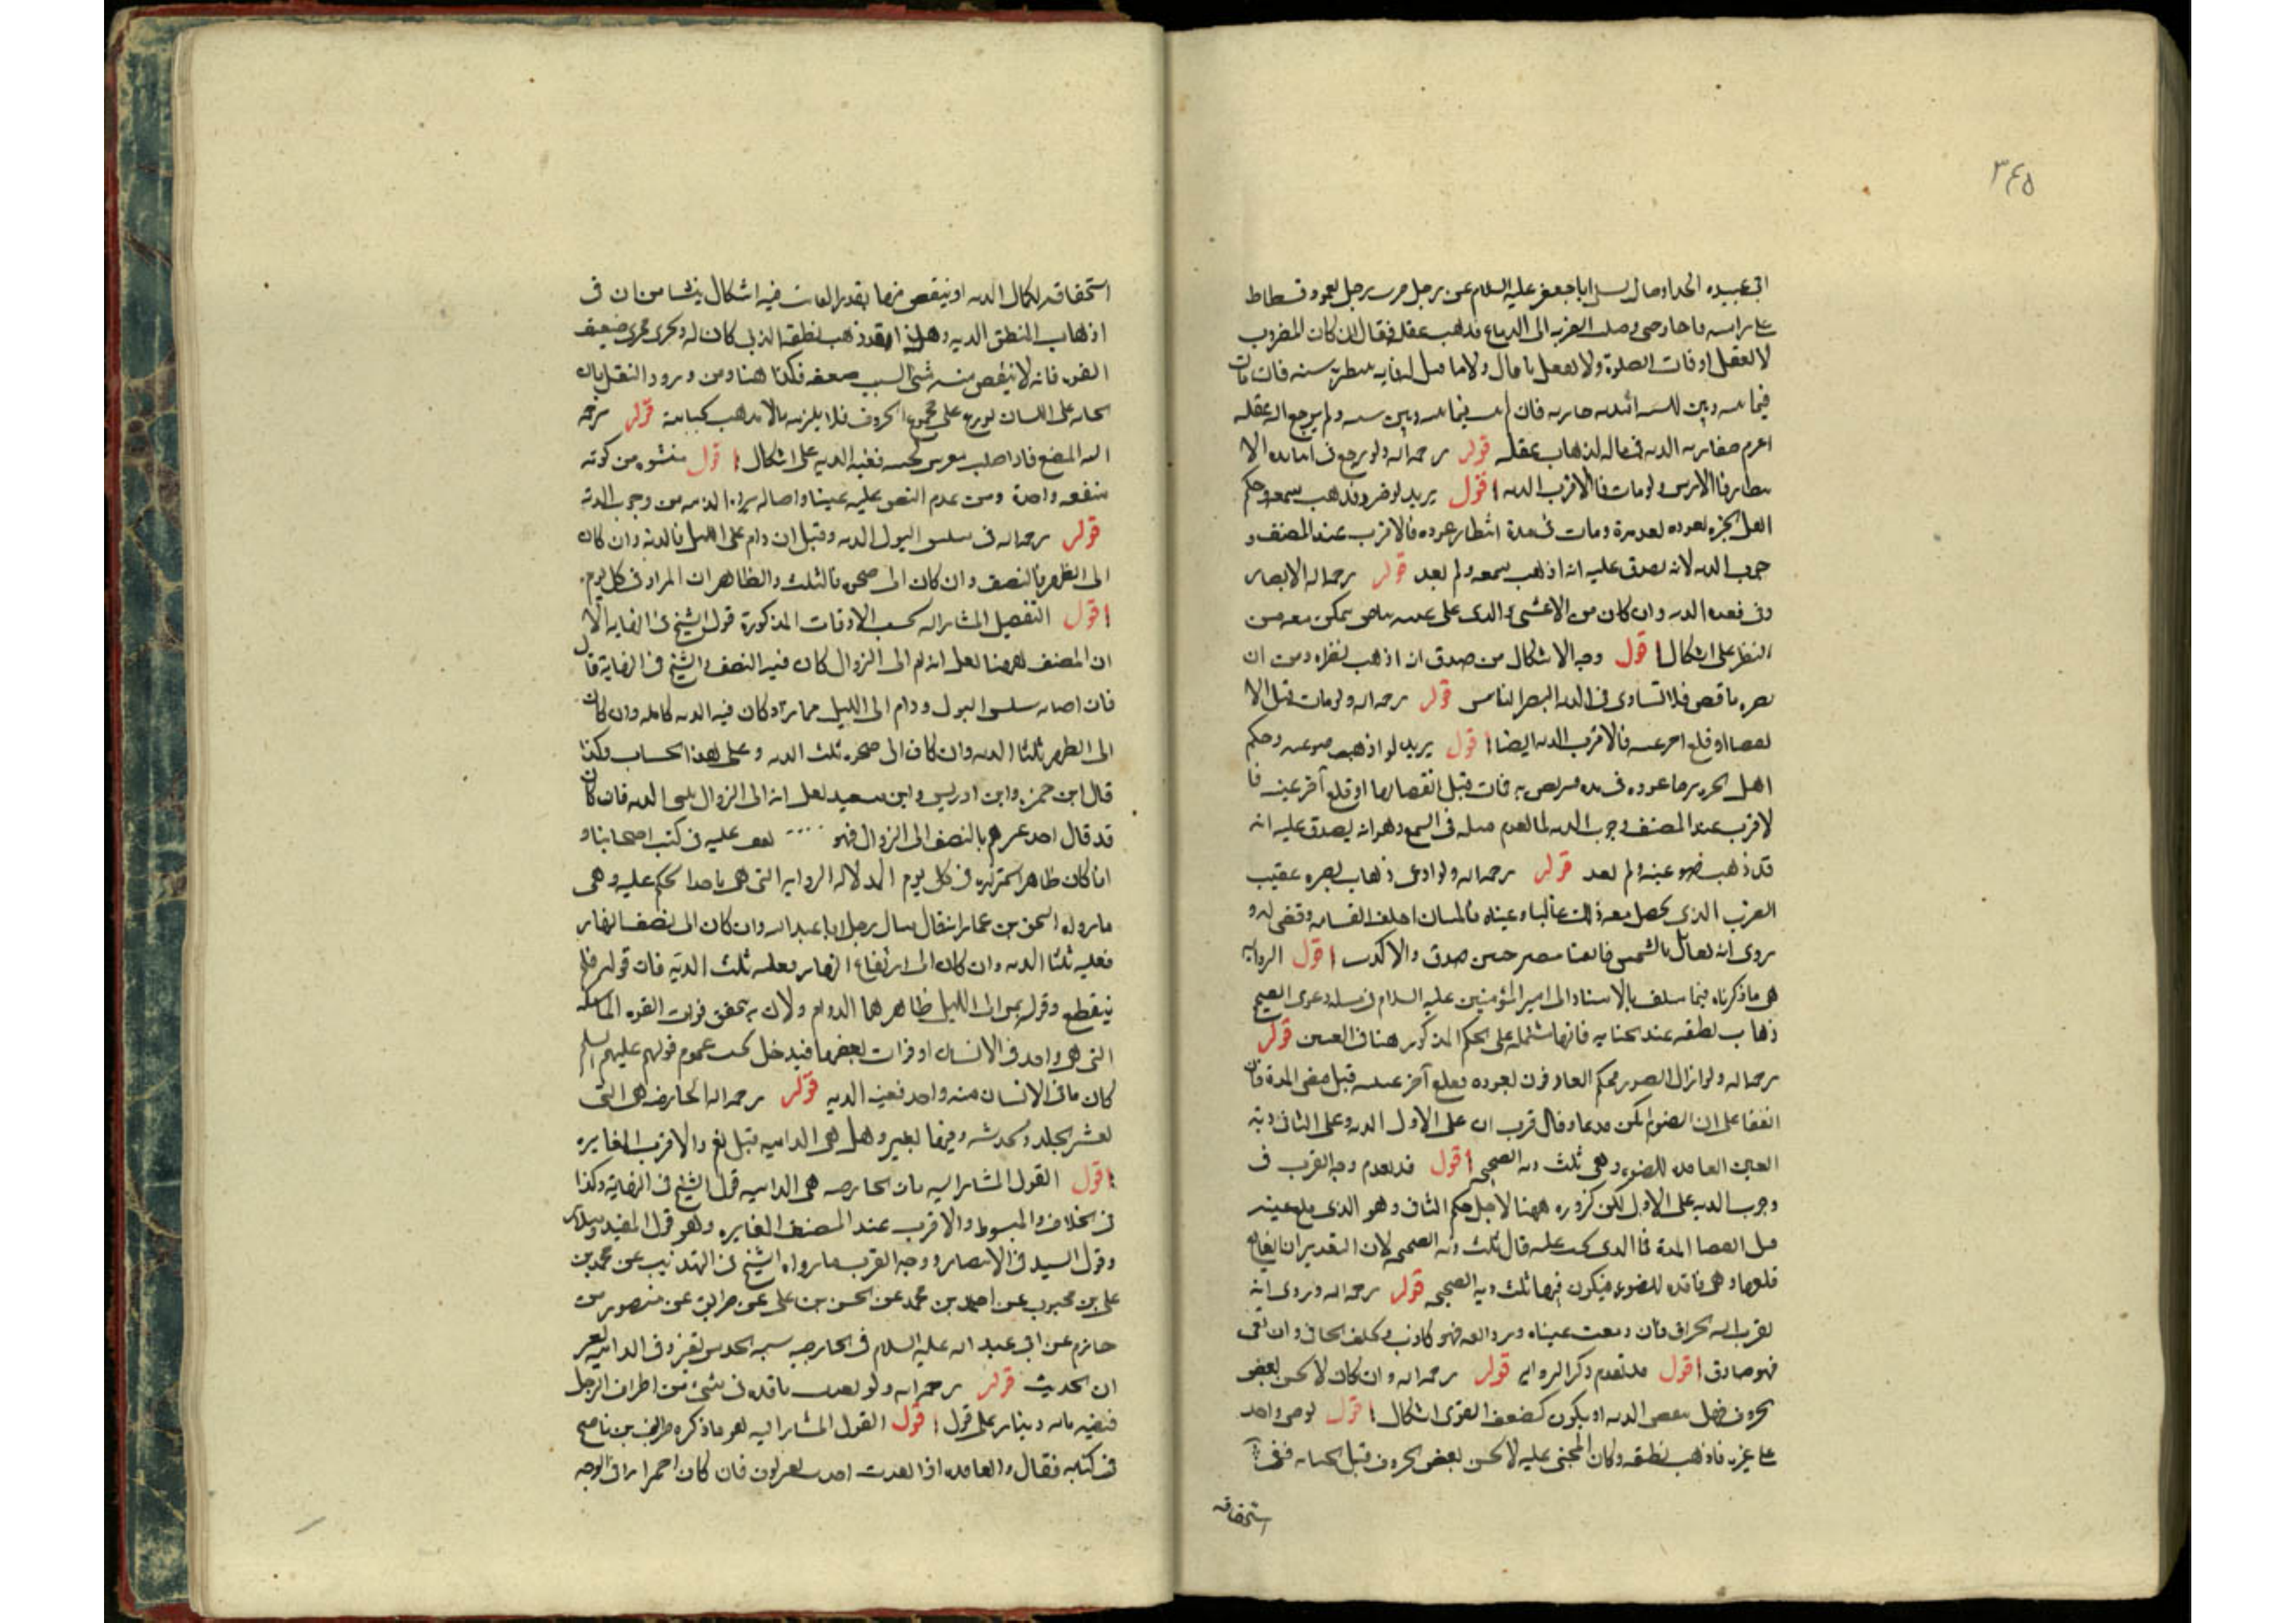 ٣٤٥
ابى عبيده الحذا وقال سال ابا جعفر عليه السلام عن رجل ضرب رجل بعمود فسطاط
على راسه فاجافه حتى وصلت الضربه الى الدماغ فذهب عقله فقال ان كان المضروب
لا يعقل اوقات الصلوة ولا يعقل ما قال ولا ما قيل له فانه ينتظر به سنه فان مات
فيما بينه وبين السنه اقيد به ضاربه فان لم يمت فيما بينه وبين سنه ولم يرجع اليه عقله
اغرم ضاربه الديه فى ماله لذهاب عقله قوله رحمه الله ولو رجع فى اثناء مدة الا
نتظار فالارش ولو مات فالاقرب الديه اقول يريد لو ضربه فذهب سمعه وحكم
اهل الخبره بعوده بعد مدة ومات فى مدة انتظار عوده فالاقرب عند المصنف و
جوب الديه لانه يصدق عليه انه اذهب سمعه ولم يعد قوله رحمه الله الابصار
وفى فقده الديه وان كان من الاعشى والذى على عينه بياض يمكن معه من
النظر على اشكال اقول وجه الاشكال من صدق انه اذهب بصره ومن ان
بصره ناقص فلا تساوى فى الديه البصر الناقص قوله رحمه الله ولو مات قبل الا
نقضا او قلع اخر عينه فالاقرب الديه ايضا اقول يريد لو اذهب ضوء عينه وحكم
اهل الخبره برجا عوده فى مده يتربص به فات قبل انقضائها او قلع آخر عينه فا
لاقرب عند المصنف وجوب الديه لما تقدم مثله فى السمع وهو انه يصدق عليه انه
قد ذهب ضوء عينه ولم يعد قوله رحمه الله ولو ادعى ذهاب بصره عقيب
الضرب الذى يحصل معه ذلك غالبا وعيناه قائمتان احلف القسامه وقضى له و
روى انه يقابل بالشمس فان بقيا مفتوحتين صدق والا كذب اقول الروايه
هى ما ذكرناه فيما سلف بالاسناد الى امير المؤمنين عليه السلام فى مسئله دعوى الصحيح
ذهاب نطقه عند الجنايه فانها مشتمله على الحكم المذكور هنا فى العين قوله
رحمه الله ولو ازال الضوء فحكم العارفون بعوده فقلع آخر عينه قبل مضى المدة فان
اتفقا على ان الضوء لم يكن قد عاد فالاقرب ان على الاول الديه وعلى الثانى دية
العين الفاقده للضوء وهى ثلث ديه الصحيح اقول قد تقدم وجه القرب فى
وجوب الديه على الاول لكن كرره ههنا لاجل حكم الثانى وهو الذى قلع عينه
قبل انقضا المدة فالذى يجب عليه قال ثلث ديه الصحيحه لان التقدير ان القالع
قلعها وهى فاقده للضوء فيكون فيها ثلث ديه الصحيحه قوله رحمه الله وروى انه
يقرب اليه الحراق فان دمعت عيناه وبردا العه فهو كاذب ويحلف الجانى وان بقى
فهو صادق اقول قد تقدم ذكر الروايه قوله رحمه الله وان كان لا يحسن بعض
الحروف فهل ينقص الديه او يكون كضعيف القوى اشكال اقول لو جنى واحد
على غيره فاذهب نطقه وكان المجنى عليه لا يحسن بعض الحروف قبل الجنايه ففى
استحقاقه
استحقاقه لكمال الديه او ينقص منها بقدر الفائت فيه اشكال ينشا من ان فى
اذهاب المنطق الديه وهذا قد ذهب نطقه الذى كان له وجرى مجرى ضعيف
القوى فانه لا ينقص منه شى السبب ضعفه فكذا هنا ومن ورود النقل بان
الجنايه على اللسان توزع على مجموع الحروف فلا يلزمه ما لا يذهب بجنايته قوله رحمه
الله المضغ فاذا اصاب مغرس لحيته ففيه الديه على اشكال اقول منشؤه من كونه
منفعه واحدة ومن عدم النص عليه عينا واصاله براءة الذمه من وجوب الدية
قوله رحمه الله فى سلس البول الديه وقيل ان دام على الليل فالدية وان كان
الى الظهر فالنصف وان كان الى ضحى فالثلث والظاهر ان المراد فى كل يوم
اقول التفصيل المشار اليه بحسب الاوقات المذكورة قول الشيخ فى النهايه الا
ان المصنف ههنا نقل انه ان دام الى الزوال كان فيه النصف والشيخ فى النهاية قال
فان اصابه سلس البول ودام الى الليل فما زاد كان فيه الديه كامله وان كان
الى الظهر ثلثا الديه وان كان الى ضحوه ثلث الديه وعلى هذا الحساب وكذا
قال ابن حمزه وابن ادريس وابن سعيد نقل انه الى الزوال ثلثى الديه فان كان
قد قال احد غيرهم بالنصف الى الزوال فهو لم نقف عليه فى كتب اصحابنا و
انما كان ظاهر استمراره فى كل يوم لدلاله الروايه التى هى ماخذ الحكم عليه وهى
ما رواه اسحق بن عمار انه قال سال رجل ابا عبد الله وان كان الى نصف النهار
فعليه ثلثا الديه وان كان الى ارتفاع النهار فعليه ثلث الدية فان قوله فلم
ينقطع وقوله يمر الى الليل ظاهرهما الدوام ولان به يتحقق فوات القوه الماسكه
التى هى واحد فى الانسان او فوات بعضها فيدخل تحت عموم قولهم عليهم السلم
كان ما فى الانسان منه واحد ففيه الديه قوله رحمه الله الحارصه هى التى
تقشر الجلد وتخدشه وفيها بعير وهل هى الداميه قيل نعم والاقرب المغايره
اقول القول المشار اليه بان الحارصه هى الداميه قول الشيخ فى النهاية وكذا
فى الخلاف والمبسوط والاقرب عند المصنف المغايره وهو قول المفيد وسلار
وقول السيد فى الانتصار ووجه القرب ما رواه الشيخ فى التهذيب عن محمد بن
على بن محبوب عن احمد بن محمد عن الحسن بن على عن ظريف عن منصور بن
حازم عن ابى عبد الله عليه السلام فى الحارصه شبه الخدش بعير وفى الداميه بعير
ان الحديث قوله رحمه الله ولو نفذت نافذه فى شى من اطراف الرجل
ففيه مائه دينار على قول اقول القول المشار اليه هو ما ذكره ظريف بن ناصح
فى كتابه فقال والنافذه اذا نفذت احد لعر لون فان كان احمرار فى الوجه